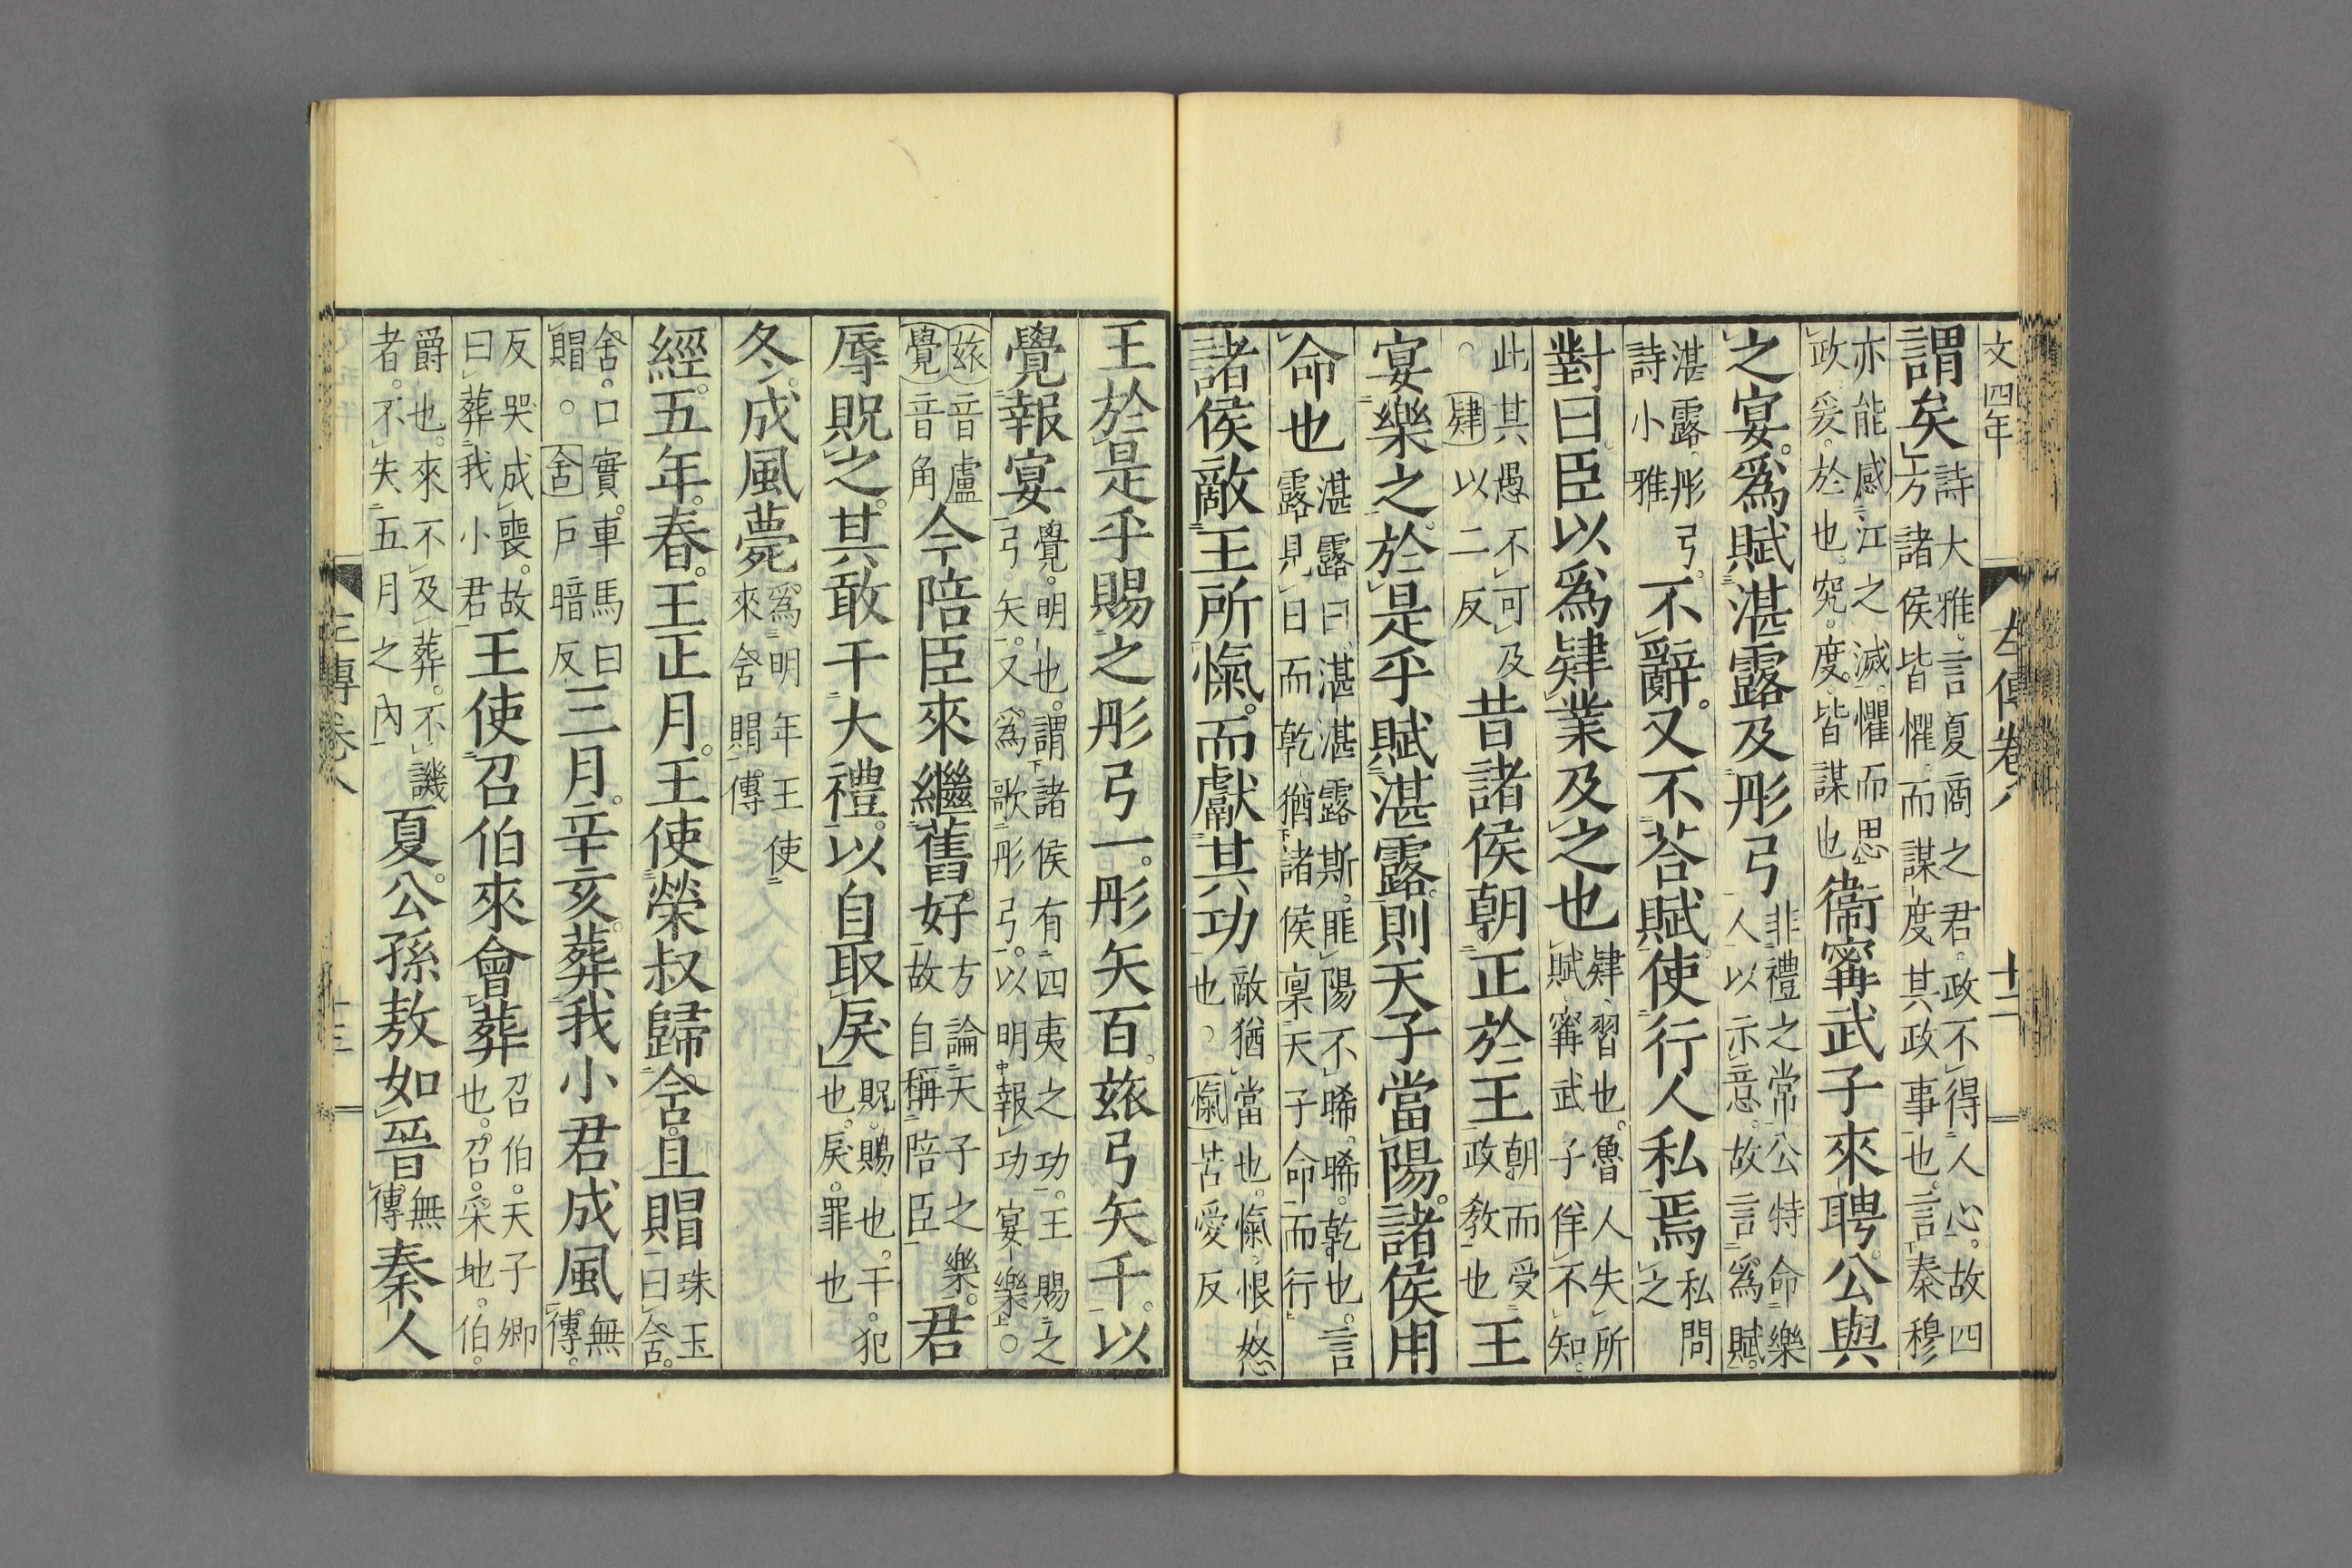 文四年
左傳卷八
十二
謂矣詩大雅。言夏商之君。政不得人心。故四方諸侯皆懼而謀度其政事也。言秦穆
亦能感江之滅。懼而思政爰。於也。究。度。皆謀也衞甯武子來聘。公與
之宴。爲賦湛露及彤弓非禮之常。公特命樂人以示意。故言爲賦。
湛露。彤弓。詩小雅不辭。又不荅賦。使行人私焉私問之
對曰。臣以爲肄業及之也肄。習也。魯人失所賦。甯武子佯不知。
此其愚不可及。○肄以二反昔諸侯朝正於王朝而受政教也王
宴樂之。於是乎賦湛露。則天子當陽。諸侯用
命也湛露曰。湛湛露斯。匪陽不晞。晞。乾也。言露見日而乾。猶諸侯稟天子命而行
諸侯敵王所愾。而獻其功敵猶當也。愾。恨怒也。○愾苦愛反
王於是乎賜之彤弓一。彤矢百。玈弓矢千。以
覺報宴覺。明也。謂諸侯有四夷之功。王賜之弓矢。又爲歌彤弓。以明報功宴樂。○
玈音盧覺音角今陪臣來繼舊好方論天子之樂。故自稱陪臣君
辱貺之。其敢干大禮。以自取戾貺。賜也。干。犯也。戾。罪也
冬。成風薨。爲明年王使來含賵傳
經。五年。春。王正月。王使榮叔歸含。且賵珠玉曰含。
含。口實。車馬曰賵。○含戶暗反三月。辛亥。葬我小君成風無傳。
反哭成喪。故曰葬我小君王使召伯來會葬召伯。天子卿也。召。采地。伯。
爵也。來不及葬。不譏者。不失五月之內夏。公孫敖如晉無傳秦人
左傳卷八
十三